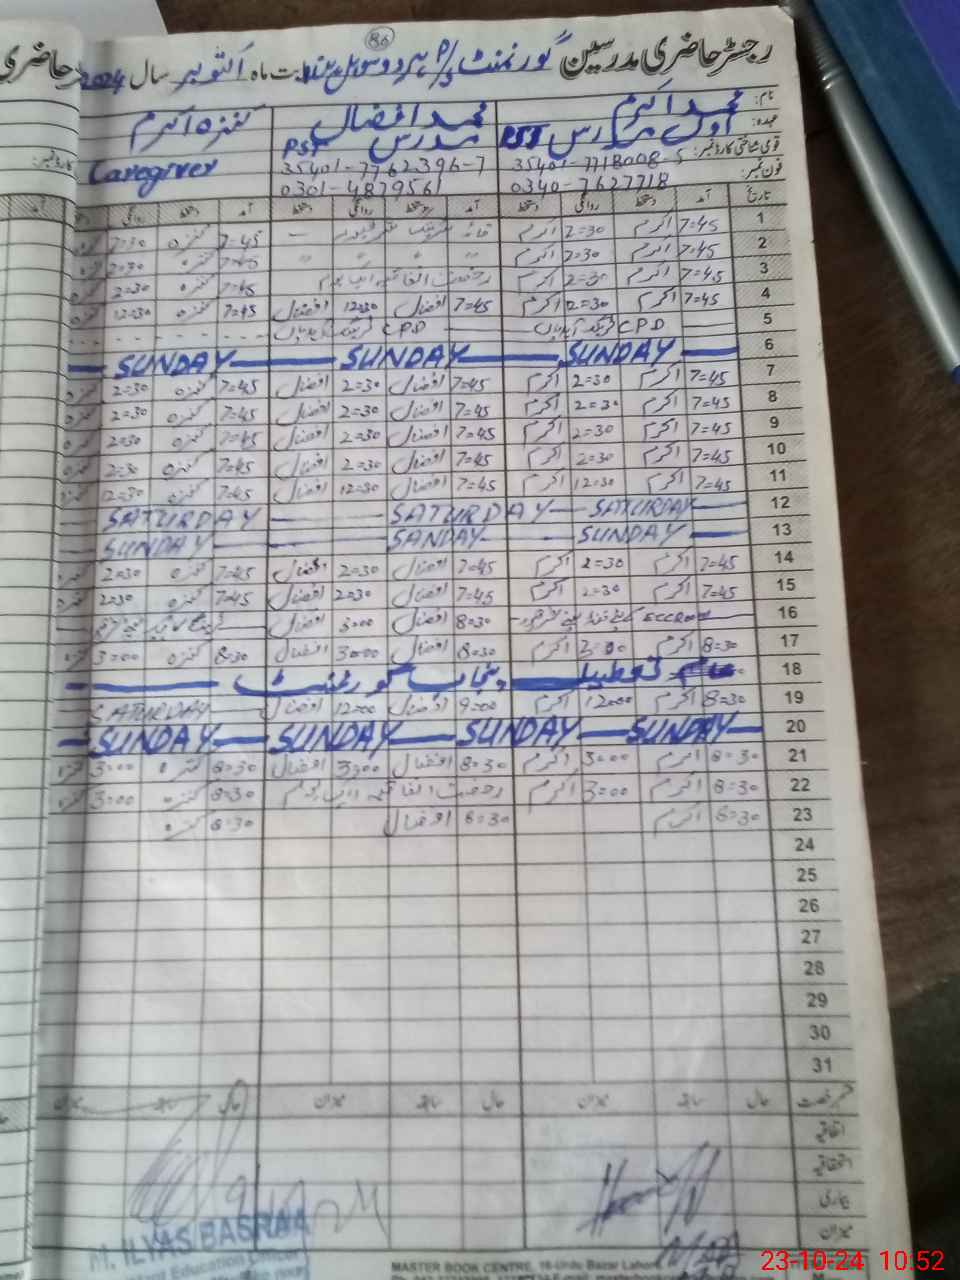 86
رجسٹر حاضری مدرسین گورنمنٹ P/S بابت ماہ اکتوبر سال 2024
نام: محمد اکرم محمد افضال کنزہ اکرم
عہدہ: اول مدرس PST مدرس PST Caregiver
قومی شناختی کارڈ نمبر: 35401-7718008-5 35401-7762396-7
فون نمبر: 0340-7627718 0301-4879561
تاریخ آمد دستخط روانگی دستخط آمد دستخط روانگی دستخط آمد دستخط روانگی
1 7=45 اکرم 2=30 اکرم 7=45 کنزہ 2=30
2 7=45 اکرم 2=30 اکرم " " " " 7=45 کنزہ 2=30
3 7=45 اکرم 2=30 اکرم رخصت اتفاقیہ ایک یوم 7=45 کنزہ 2=30
4 7=45 اکرم 2=30 اکرم 7=45 افضال 12=30 افضال 7=45 کنزہ 12=30
5 CPD CPD
6 SUNDAY SUNDAY SUNDAY
7 7=45 اکرم 2=30 اکرم 7=45 افضال 2=30 افضال 7=45 کنزہ 2=30
8 7=45 اکرم 2=30 اکرم 7=45 افضال 2=30 افضال 7=45 کنزہ 2=30
9 7=45 اکرم 2=30 اکرم 7=45 افضال 2=30 افضال 7=45 کنزہ 2=30
10 7=45 اکرم 2=30 اکرم 7=45 افضال 2=30 افضال 7=45 کنزہ 2=30
11 7=45 اکرم 12=30 اکرم 7=45 افضال 12=30 افضال 7=45 کنزہ 12=30
12 SATURDAY SATURDAY SATURDAY
13 SUNDAY SANDAY SUNDAY
14 7=45 اکرم 2=30 اکرم 7=45 افضال 2=30 افضال 7=45 کنزہ 2=30
15 7=45 اکرم 2=30 اکرم 7=45 افضال 2=30 افضال 7=45 کنزہ 2=30
16 8=30 افضال 3=00 افضال
17 8=30 اکرم 3=00 اکرم 8=30 افضال 3=00 افضال 8=30 کنزہ 3=00
18 عام تعطیل پنجاب گورنمنٹ
19 8=30 اکرم 12=00 اکرم 9=00 افضال 12=00 افضال SATURDAY
20 SUNDAY SUNDAY SUNDAY SUNDAY
21 8=30 اکرم 3=00 اکرم 8=30 افضال 3=00 افضال 8=30 کنزہ 3=00
22 8=30 اکرم 3=00 اکرم رخصت اتفاقیہ ایک یوم 8=30 کنزہ 3=00
23 8=30 اکرم 8=30 افضال 8=30 کنزہ
24
25
26
27
28
29
30
31
رخصت حال سابقہ میزان حال سابقہ میزان حال سابقہ میزان
اتفاقیہ
استحقاقیہ
بیماری
میزان
M. ILYAS BASRAA
Education Officer
MASTER BOOK CENTRE, 16-Urdu Bazar Lahore
23-10-24 10:52